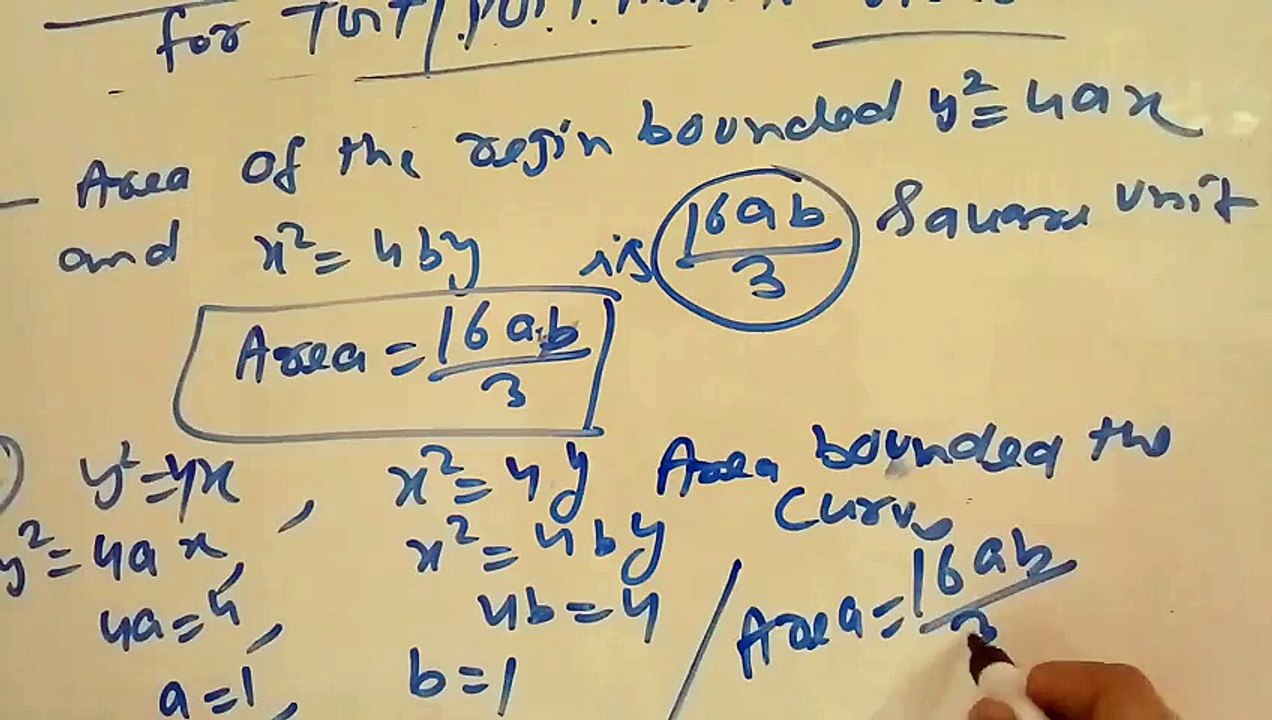 for
Area of the regin bounded y²=4ax
and x²=4by is 16ab/3 Square unit
Area = 16a.b/3
y²=4x , x²=4y Area bounded the
curve
y²=4ax , x²=4by
Area = 16ab/3
4a=4 , 4b=4
a=1 , b=1